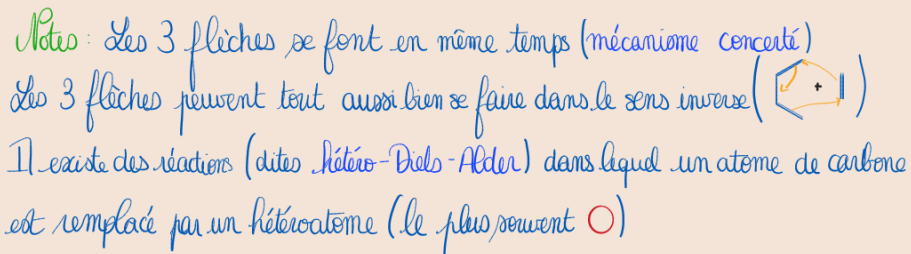 Notes : Les 3 flèches se font en même temps (mécanisme concerté)
Les 3 flèches peuvent tout aussi bien se faire dans le sens inverse ( + )
Il existe des réactions (dites hétéro-Diels-Alder) dans lequel un atome de carbone
est remplacé par un hétéroatome (le plus souvent O)